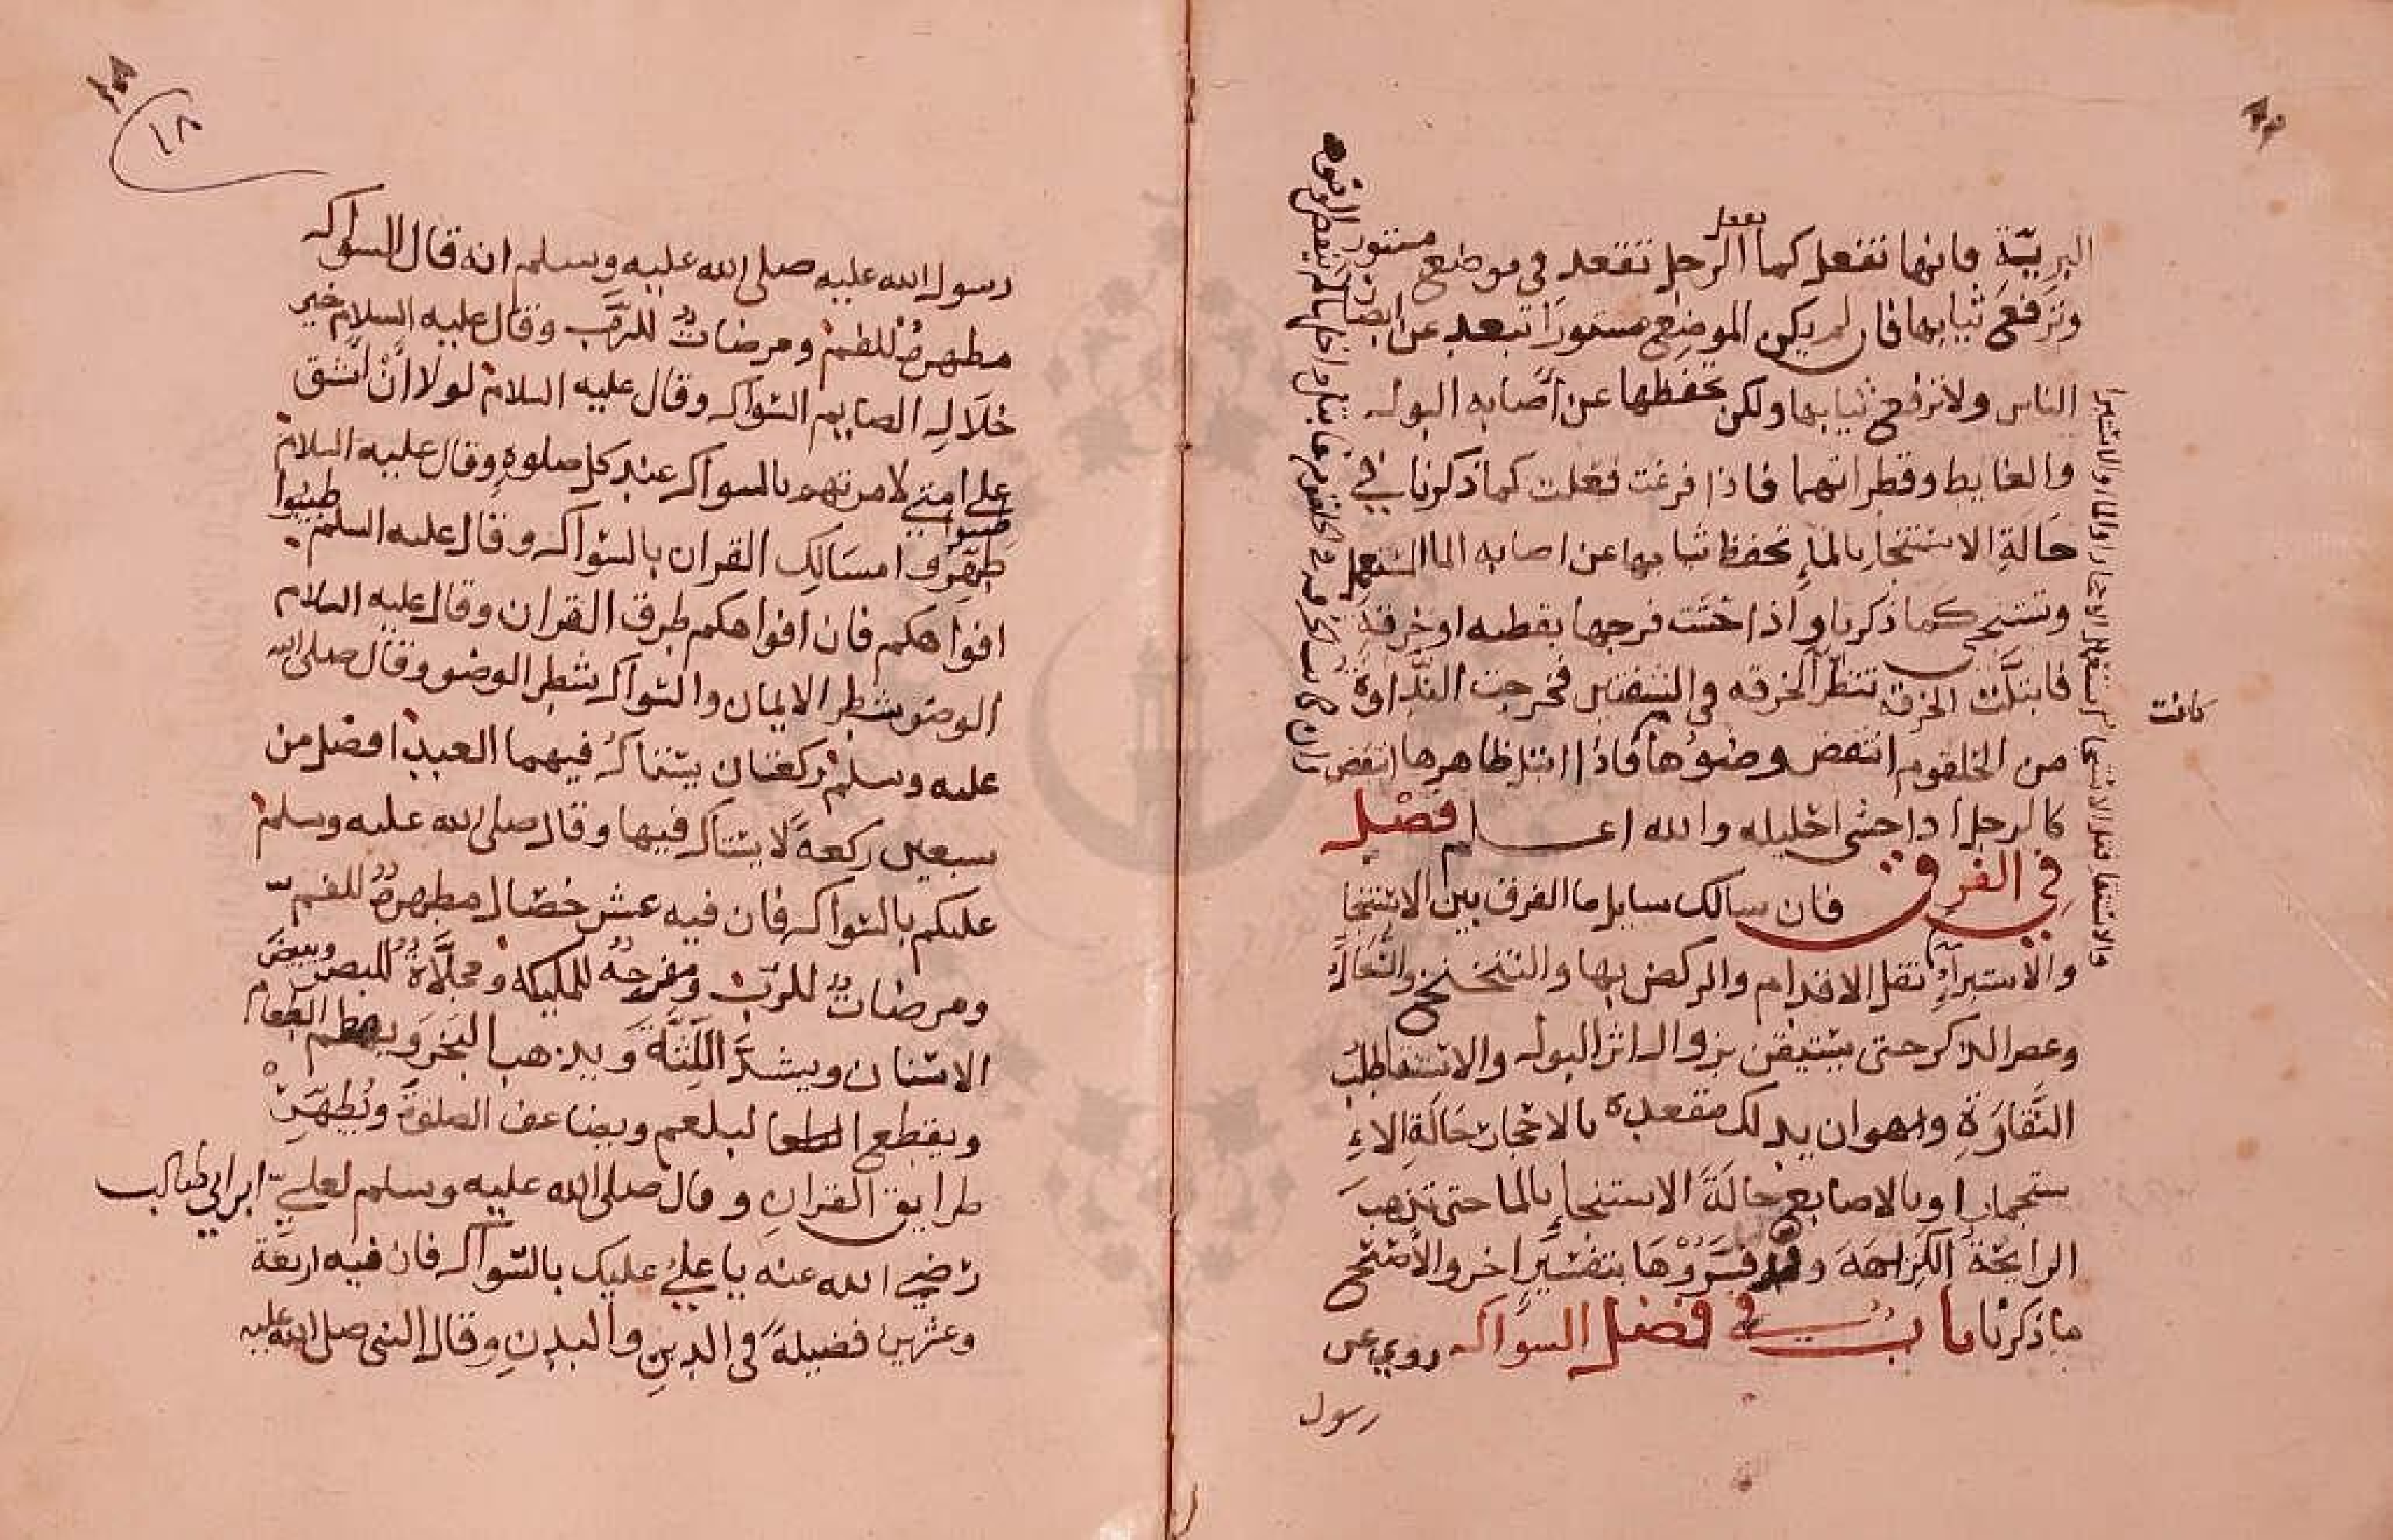 البريّة فانها تفعل كما يفعل الرجل تقعد في موضع مستور
وترفع ثيابها فان لم يكن الموضع مستورا تبعد عن ابصار
الناس ولا ترفع ثيابها ولكن تحفظها عن اصابه البول
والغايط وقطراتهما فاذا فرغت فعلت كما ذكرنا في
حالة الاستنجا بالماء تحفظ ثيابها عن اصابه الما
وتستنجي كما ذكرنا واذا حشت فرجها بقطنه او خرقة
فابتلّت الخرقة تنظر الخرقه في فخرجت النداوة
من الحلقوم انتقض وضوءها فاذا ابتل ظاهرها انتقض
كالرجل اذا حشى احليله والله اعلم فصل
في الفرق فان سالك سايل ما الفرق بين الاستنجا
والاستبراء نقل الاقدام والركض بها والتنحنح
وعصر الذكر حتى يستيقن بزوال اثر البول والاستنقا طلب
النقاوة وهو ان يدلك مقعده بالاحجار حالة الا
ستجمار او بالاصابع حالة الاستنجاء بالما حتى تذهب
الرايحة الكراهة وقد فسروها بتفسير اخر والاصح
ما ذكرنا باب في فضل السواك روي عن
رسول
كانت
رسول الله عليه صلى الله عليه وسلم انه قال السواك
مطهرة للفم ومرضات للرب وقال عليه السلام خير
خلال الصايم السواك وقال عليه السلام لولا ان اشق
على امتي لامرتهم بالسواك عند كل صلوة وقال عليه السلام
طهروا مسالك القران بالسواك وقال عليه السلم طيبوا
افواهكم فان افواهكم طرق القران وقال عليه السلام
الوضو شطر الايمان والسواك شطر الوضو وقال صلى الله
عليه وسلم ركعتان يستاك فيهما العبد افضل من
سبعين ركعة لا يستاك فيها وقال صلى الله عليه وسلم
عليكم بالسواك فان فيه عشر خصال مطهرة للفم
ومرضات للرب ومفرحة للمليكة ومجلاة للبصر وبيض
الاسنان ويشد اللثة ويذهب البخر ويهضم الطعام
ويقطع البلغم ويضاعف الصلوة ويطهر
طرايق القران وقال صلى الله عليه وسلم لعلي ابن ابي طالب
رضي الله عنه يا علي عليك بالسواك فان فيه اربعة
وعشرين فضيلة في الدين والبدن وقال النبي صلى الله عليه
١٨